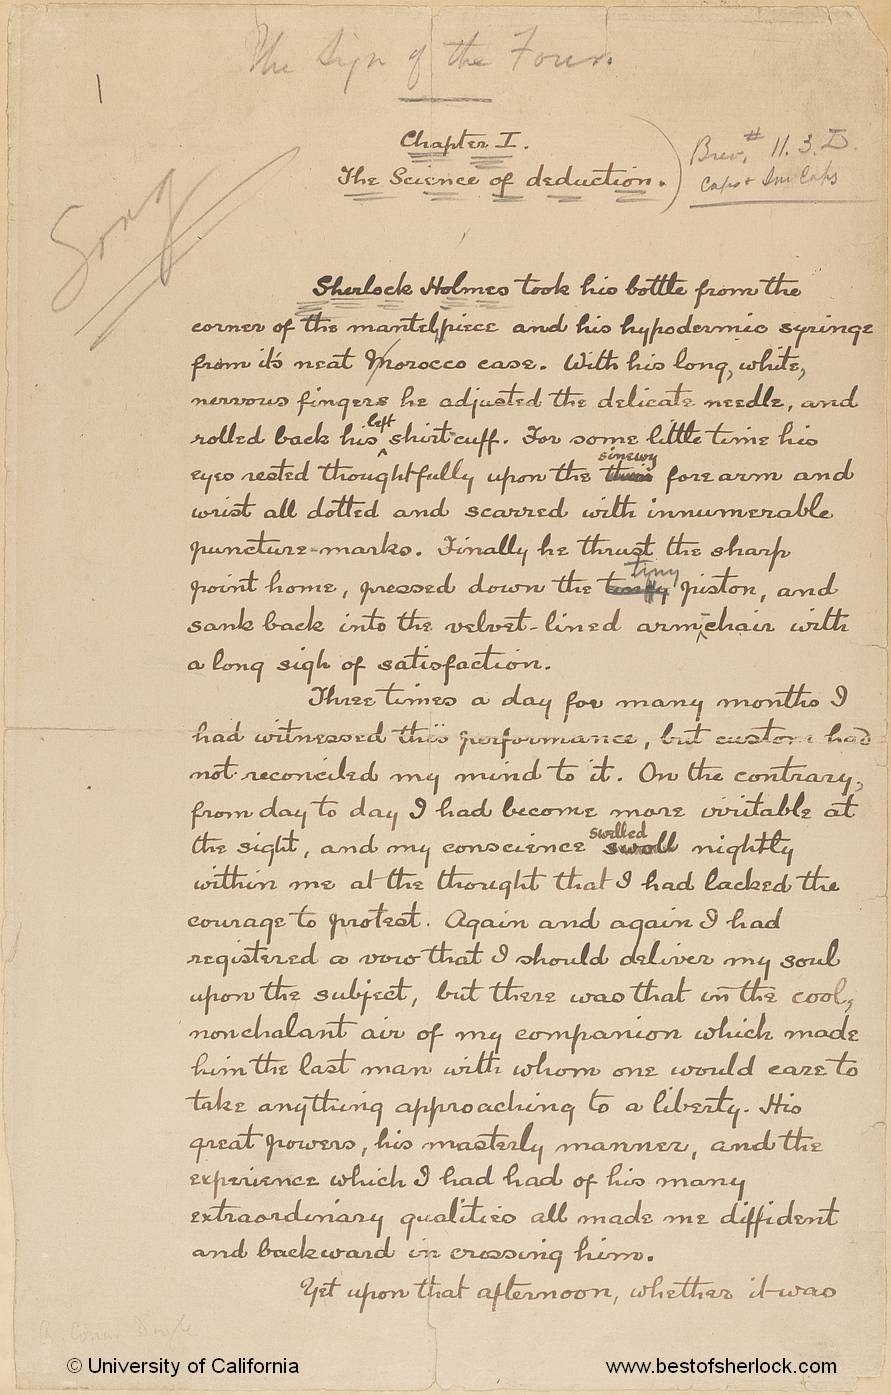 The Sign of the Four.
1
Chapter I.
The Science of deduction.
Brev. # 11. 3. D.
Caps + Sm Caps
Song
Sherlock Holmes took his bottle from the
corner of the mantelpiece and his hypodermic syringe
from it's neat Morocco case. With his long, white,
nervous fingers he adjusted the delicate needle, and
rolled back his left shirt-cuff. For some little time his
eyes rested thoughtfully upon the sinewy forearm and
wrist all dotted and scarred with innumerable
puncture-marks. Finally he thrust the sharp
point home, pressed down the tiny piston, and
sank back into the velvet-lined arm-chair with
a long sigh of satisfaction.
Three times a day for many months I
had witnessed this performance, but custom had
not reconciled my mind to it. On the contrary,
from day to day I had become more irritable at
the sight, and my conscience swelled nightly
within me at the thought that I had lacked the
courage to protest. Again and again I had
registered a vow that I should deliver my soul
upon the subject, but there was that in the cool,
nonchalant air of my companion which made
him the last man with whom one would care to
take anything approaching to a liberty. His
great powers, his masterly manner, and the
experience which I had had of his many
extraordinary qualities all made me diffident
and backward in crossing him.
Yet upon that afternoon, whether it was
A Conan Doyle
© University of California
www.bestofsherlock.com